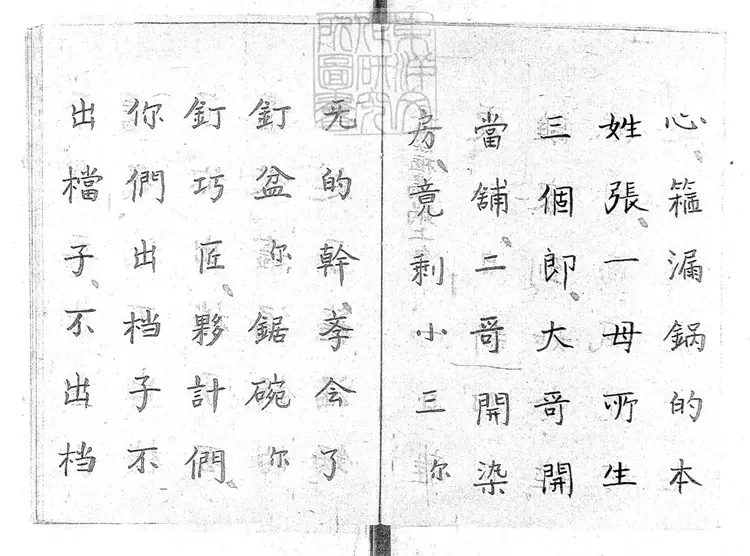 心箍漏鍋的本
姓張、一母所生
三個郎、大哥開
當舖、二哥開染
房、竟剩小三尔
无的幹、孝会了
釘盆尔鋸碗尔
釘巧匠、夥計們、
你們出档子不
出檔子、不出档